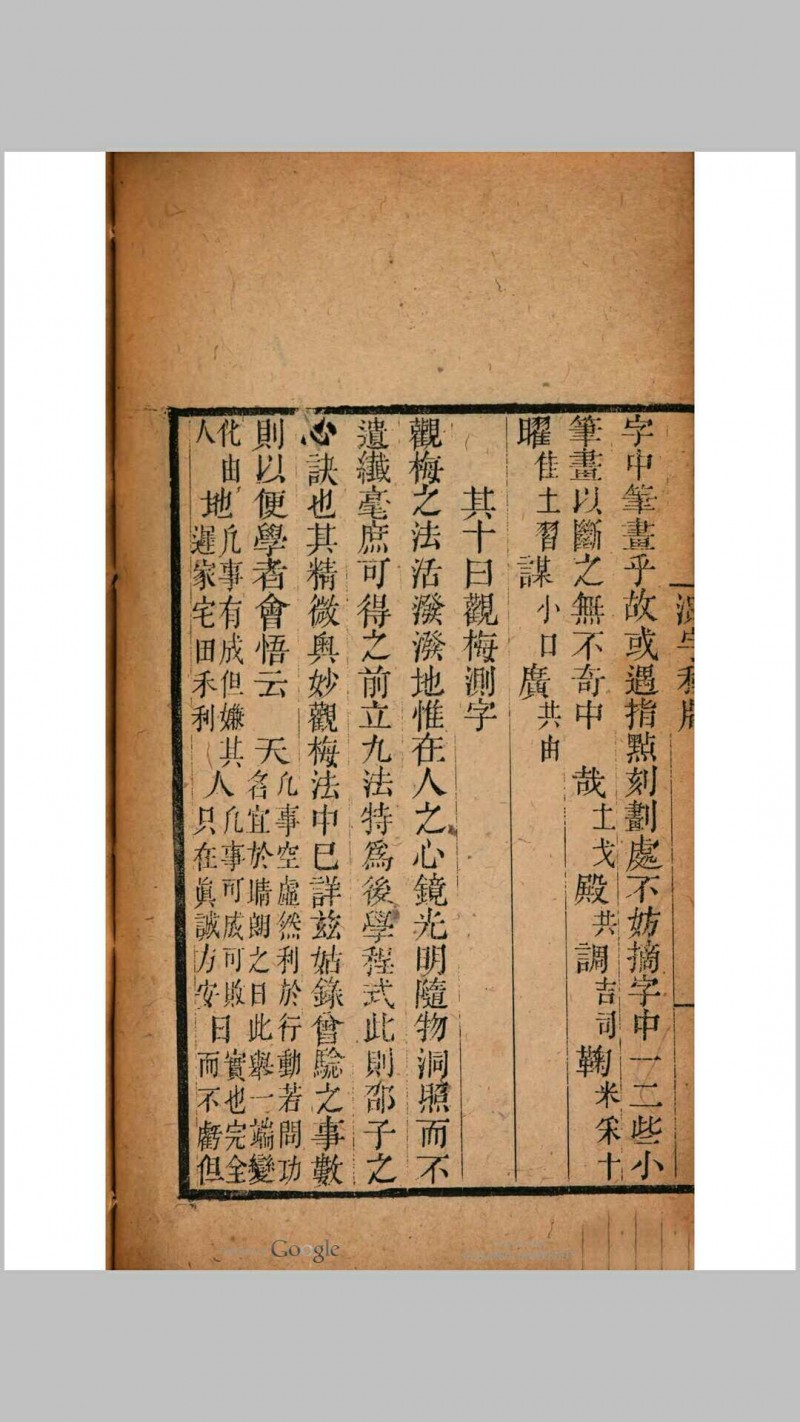 測字秘牒
字中筆畫乎故或遇指點刻劃處不妨摘字中一二些小
筆畫以斷之無不奇中　哉土戈殿共調吉司鞠米米十
曜佳土習謀小口廣共由
其十曰觀梅測字
觀梅之法活潑潑地惟在人之心鏡光明隨物洞照而不
遺纖毫庶可得之前立九法特為後學程式此則邵子之
心訣也其精微奧妙觀梅法中已詳茲姑錄曾驗之事數
則以便學者會悟云　天凡事空虛然利於行動若問功名宜於晴朗之日此舉一端變
化由人地凡事有成但嫌其遲家宅田禾利人凡事可成可敗只在眞誠方安日實也完全而不虧但
Google